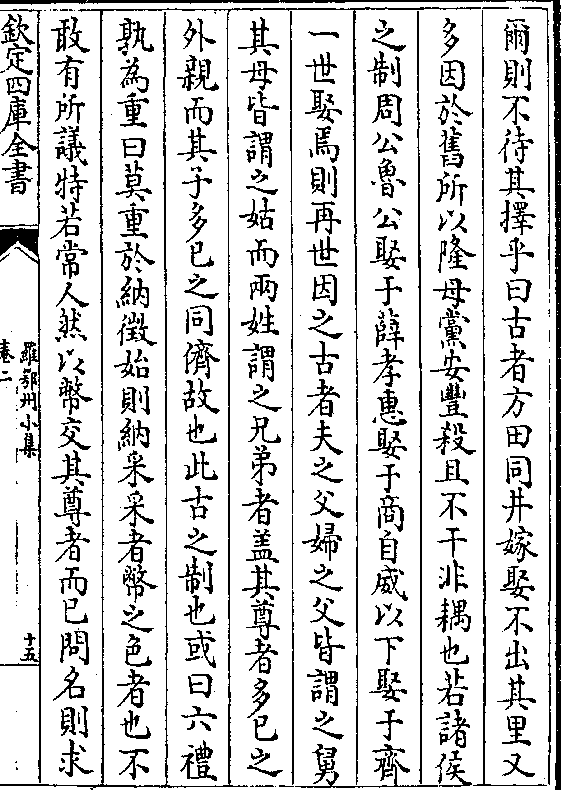 爾則不待其擇乎曰古者方田同井嫁娶不出其里又
多因於舊所以隆母黨安豐殺且不干非耦也若諸侯
之制周公魯公娶于薛孝惠娶于商自威以下娶于齊
一世娶焉則再世因之古者夫之父婦之父皆謂之舅
其母皆謂之姑而兩姓謂之兄弟者盖其尊者多已之
外親而其子多已之同儕故也此古之制也或曰六禮
孰為重曰莫重於納徵始則納采采者幣之色者也不
敢有所議特若常人然以幣交其尊者而已問名則求
欽定四庫全書
羅鄂州小集
卷二
十五